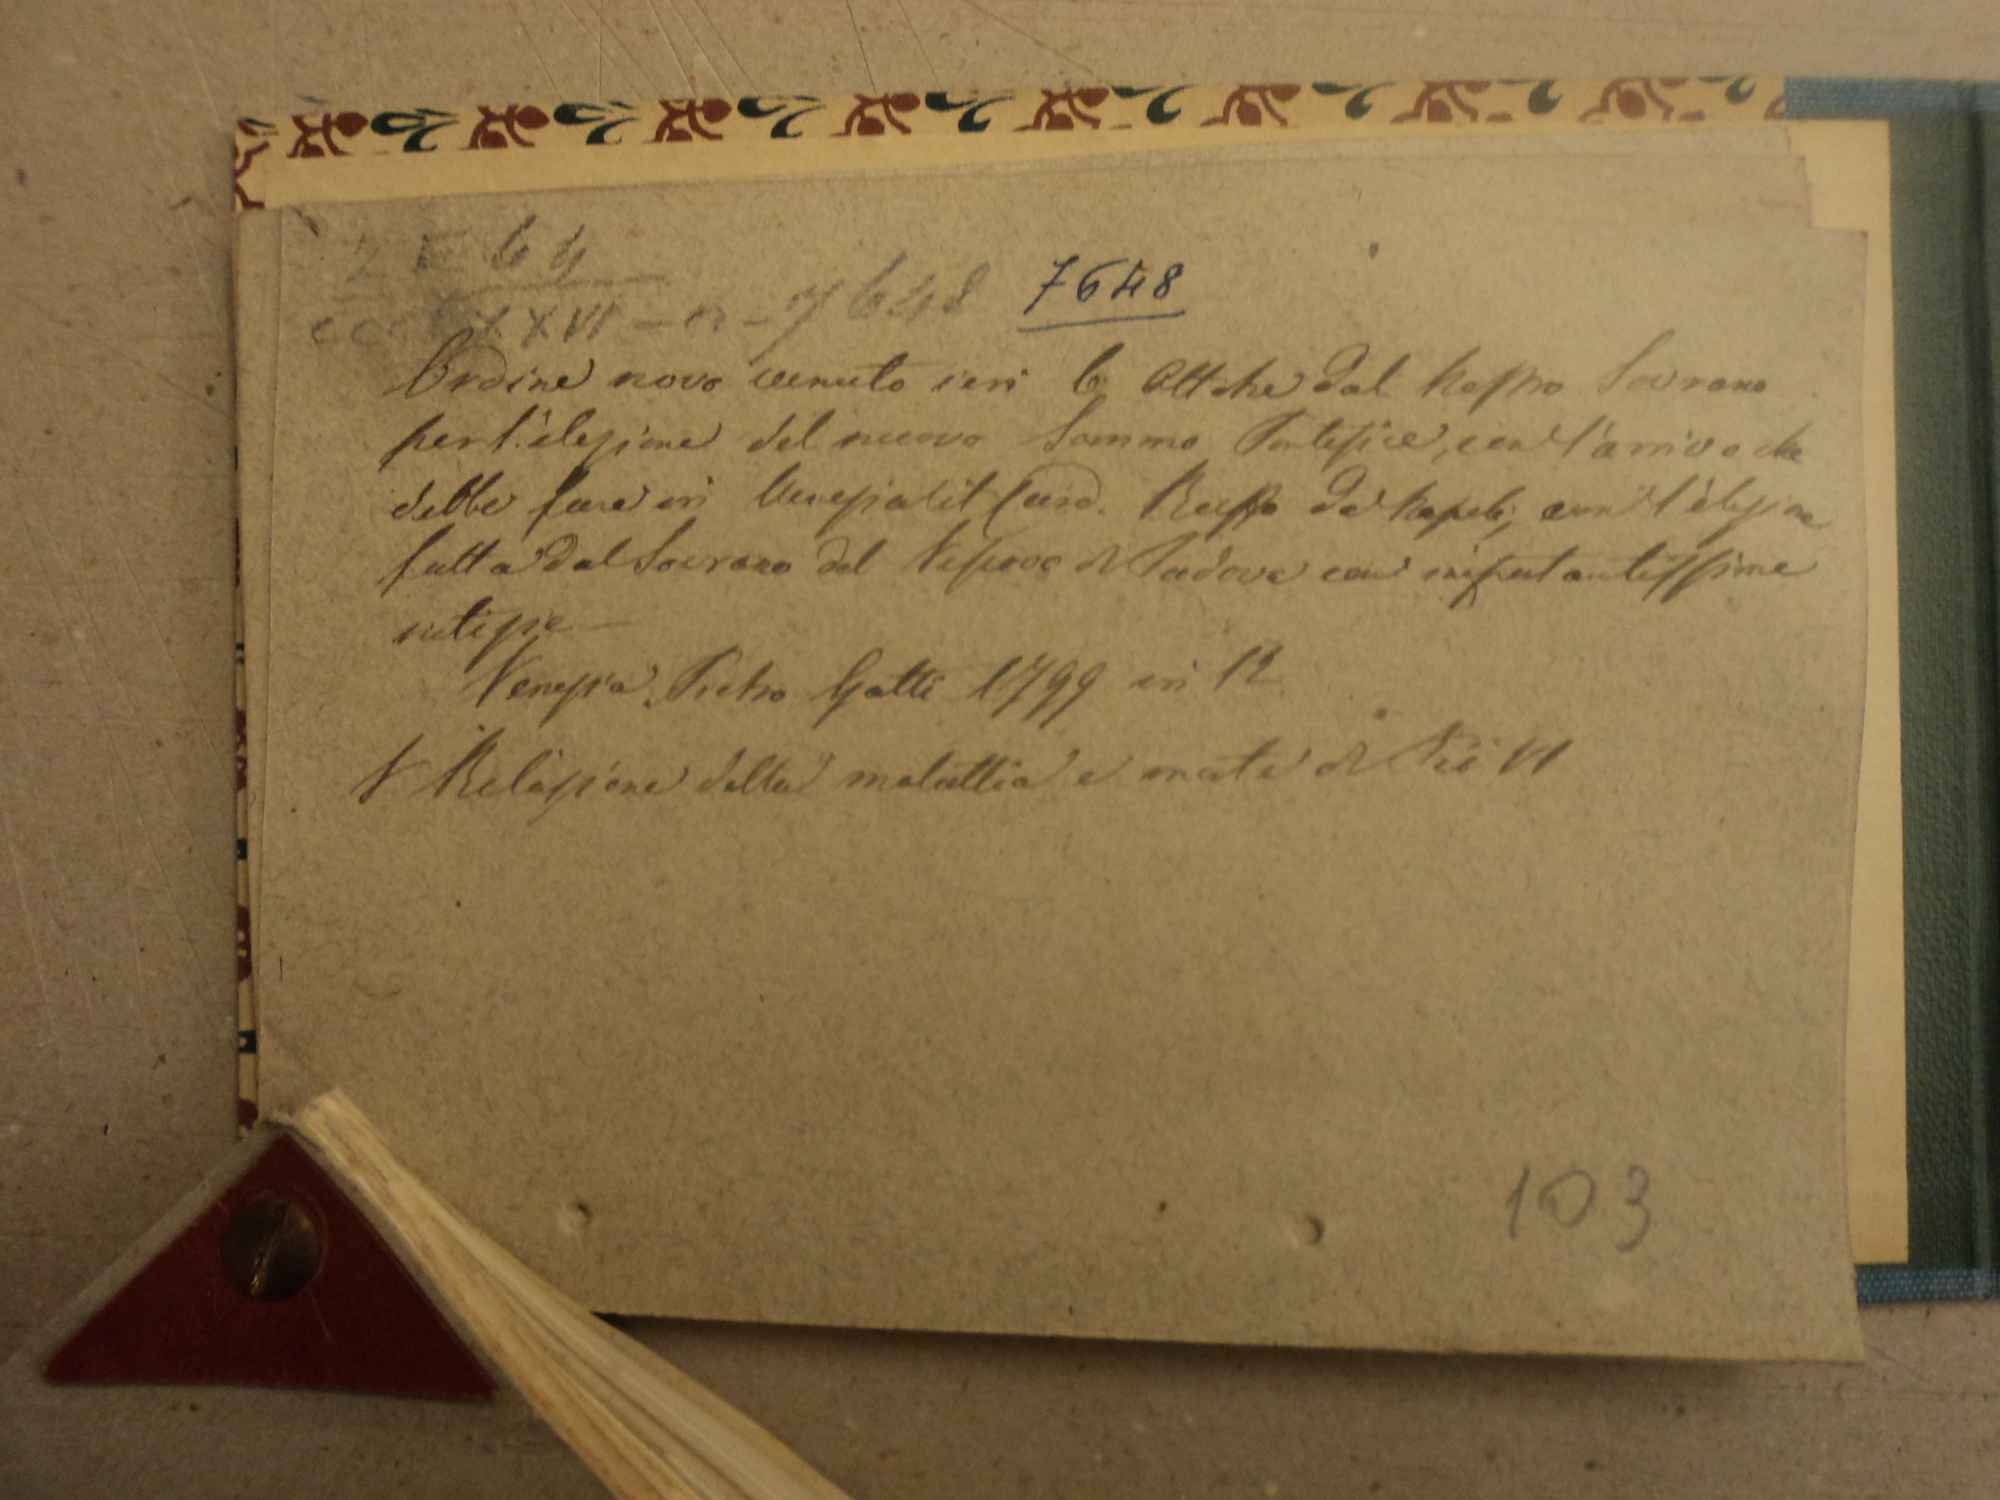 64
XXVI - n - 7648 7648
Ordine novo venuto ieri 6 Ottobre dal Nostro Sovrano
per l'elezione del nuovo Sommo Pontefice, con l'arrivo che
debbe fare in Venezia il Card. Ruffo da Napoli, con l'elezione
fatta dal Sovrano del Vescovo di Padova con importantissime
notizie —
Venezia Pietro Gatti 1799 in 12
V Relazione della malattia e morte di Pio VI
103